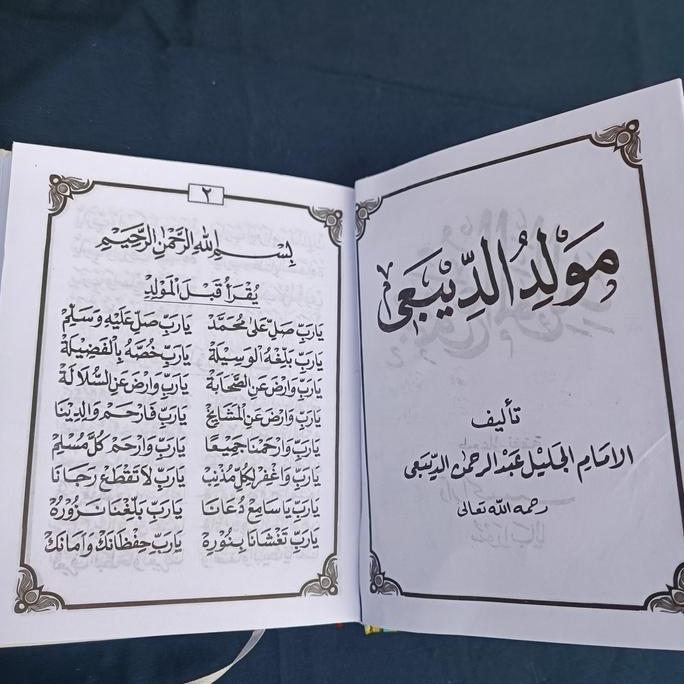 مَوْلِدُ الدِّيبَعِى
تأليف
الامَامِ الجَلِيْل عَبْد الرحمٰن الديبَعى
رحمه الله تعالى
٢
بِسْمِ اللهِ الرَّحْمٰنِ الرَّحِيْمِ
يُقْرَأُ قَبْلَ الْمَوْلِدِ
يَارَبِّ صَلِّ عَلىٰ مُحَمَّدْ يَارَبِّ صَلِّ عَلَيْهِ وَسَلِّمْ
يَارَبِّ بَلِّغْهُ الْوَسِيْلَةْ يَارَبِّ خُصَّهُ بِالْفَضِيْلَةْ
يَارَبِّ وَارْضَ عَنِ الصَّحَابَةْ يَارَبِّ وَارْضَ عَنِ السُّلَالَةْ
يَارَبِّ وَارْضَ عَنِ الْمَشَايِخْ يَارَبِّ فَارْحَمْ وَالِدِيْنَا
يَارَبِّ وَارْحَمْنَا جَمِيْعًا يَارَبِّ وَارْحَمْ كُلَّ مُسْلِمْ
يَارَبِّ وَاغْفِرْ لِكُلِّ مُذْنِبْ يَارَبِّ لَاتَقْطَعْ رَجَانَا
يَارَبِّ يَاسَامِعْ دُعَانَا يَارَبِّ بَلِّغْنَا نَزُوْرُهْ
يَارَبِّ تَغْشَانَا بِنُوْرِهْ يَارَبِّ حِفْظَانَكْ وَاَمَانَكْ